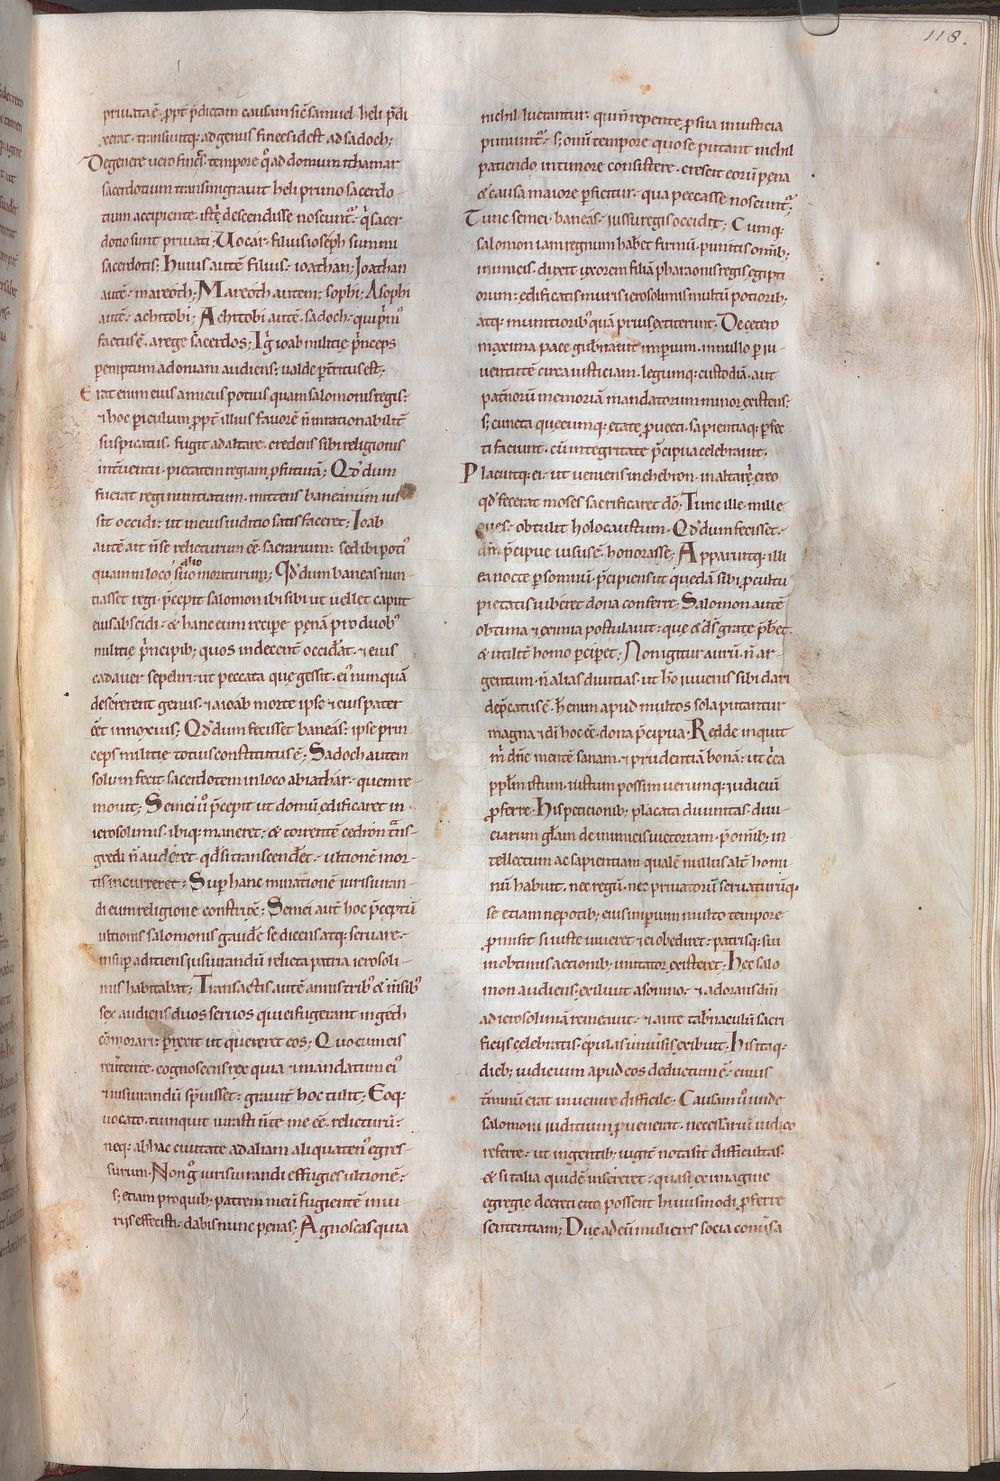 118.
priuata ē. ꝓpt̄ p̄dictam causam sic̄ samuel heli p̄di
xerat. transiuitq; ad genus finees idest ad sadoch;
De genere uero finees. tempore q̊ ad domum ithamar
sacerdotium transmigrauit heli primo sacerdo-
tium accipiente. isti descendisse noscunt̄. q̊ sacer
dotio sunt priuati; Uocar. filius ioseph summi
sacerdotis; Huius autē filius. ioathan; Joathan
autē. mareoth; Mareoth autem. sophi; Asophi
autē. achitobi; Achitobi autē. sadoch. qui p̄m̊
factus ē. a rege sacerdos; Igr̄ ioab militię p̄nceps
peremptum adoniam audiens; ualde p̄territus est;
Erat enim eius amicus potius quam salomonis regis.
& hoc periculum ꝓpt̄ illius favorē n̄ inrationabilit̄
suspicatus. fugit ad altare. credens sibi religionis
intuentu. pietatem regiam ꝓfuturā; Qd̄ dum
fuerat regi nuntiatum. mittens baneam ius
sit occidi. ut in eius iuditio satisfaceret; Ioab
autē ait n̄ se relicturum eē. sacrarium. sed ibi poti'
quam in loco suo alio moriturum; Qd̄ dum baneas nun-
tiasset regi. p̄cepit salomon ibi sibi ut uellet caput
eius abscidi. & hanc eum recipere pęnā pro duob'
militię p̄ncipib; quos indecent̄ occiderat. & eius
cadauer sepeliri. ut peccata quę gessit. ei' nunquā
desererent genus. & a ioab morte ipse & eius pater
eēt innoxius; Qd̄ dum fecisset baneas. ipse prin
ceps militię totius constitutus ē; Sadoch autem
solum fecit sacerdotem in loco abiathar. quem re-
mouit; Semei ū p̄cepit ut domū ędificaret in
ierosolimis. ibiq; maneret. & torrentē cedron t̄ns-
gredi n̄ auderet. qd̄ si transcenderet. ultionē mor-
tis incurreret; Super hanc mirationē iurisiuran-
di eum religione constrixit; Semei aut̄ hoc p̄ceptū
ultionis salomonis gaudere se dicens atq; seruare.
insup aditiens iusiurandū relicta patria ierosoli-
mis habitabat; Transactis autē annis trib' & m̄sib'
sex audiens duos seruos qui ei fugerant in geth
cōmorari. perrexit ut quereret eos; Quo cum eis
reūtente. cognoscens rex quia & mandatum ei'
& iusiurandū sp̄uisset. grauit̄ hoc tulit; Eoq;
uocato. tu inquit iurasti n̄ te me eē. relicturū.
neq; ab hac ciuitate ad aliam aliquaten' egres-
surum. Non g̊ iurisiurandi effugies ultionē.
s; etiam pro quib; patrem meū fugientē iniu
riis effecisti. dabis nunc pęnas; Agnoscas quia
nichil lucrantur. qui n̄ repente ꝓ sua iniusticia
puniunt̄. s; omī tempore quo se putant nichil
patiendo in timore consistere. crescit eorū pęna
& causa maiore ꝑficitur. qua peccasse noscunt̄;
Tunc semei. baneas. iussu regis occidit; Cumq;
salomon iam regnum haberet firmū. punitis omib;
inimicis. duxit uxorem filiā pharaonis regis egipti
orum. ędificatis muris ierosolimis multū potiorib;
atq; munitiorib' quā prius extiterunt. De cetero
maxima pace gubernauit imperium. in nullo ꝓ iu-
uentute circa iusticiam. legumq; custodiā. aut
paternorū memoriā mandatorum minor existens.
s; cuncta quęcumq; etate ꝓuecti. sapientiaq; ꝑfec
ti faciunt. cū integritate p̄cipua celebrauit.
Placuitq; ei. ut ueniens in chebron. in altari ęreo
qd̄ fecerat moses sacrificaret dō. Tunc ille mille
oues. obtulit holocaustum. Qd̄ dum fecisset.
dm̄. p̄cipue uisus ē. honorasse; Apparuitq; illi
ea nocte per somnū. p̄cipiens ut quedā sibi ꝓ cultu
pietatis iuberet dona conferre. Salomon autē
obtima & eximia postulauit. quę & ds̄ grate p̄bet.
& utilit̄ homo percipet; Non igitur aurū. n̄ ar-
gentum. n̄ alias diuitias. ut hō iuuenis sibi dari
deprecatus ē. H̄ enim apud multos sola putantur
magna & dī hoc eē. dona p̄cipua. Redde inquit
m̄ dn̄e mentē sanam. & prudentiā bonā. ut c̄ca
pplm̄ istum. iustum possim uerumq; iudiciū
ꝓferre. His peticionib; placata diuinitas. diui-
ciarum gl̄am de inimicis uictoriam. p̄ omib; in
tellectum ac sapientiam qualē nullus alt̄ homi
nū habuit. nec regū. nec priuatorū seruaturūq;
se etiam nepotib; eius imperium multo tempore
ꝓmisit. si iuste uiueret & ei obediret. patrisq; sui
in obtimis actionib; imitator existeret; Hec salo
mon audiens. exiluit a somno. & adorans dm̄
ad ierosolimā remeauit. & ante tabernaculū sacri
ficiis celebratis. epulas uniūsis exibuit. His itaq;
dieb; iudicium apud eos deductum ē. cuius
t̄minū erat inuenire difficile. Causam ū unde
salomoni iuditium ꝓuenerat. necessariū iudico
referre. ut ingentib; uigit notasit difficultas.
& si talia quidē inscieret. quasi ex imagine
egregie decreti cito possent huiusmodi ꝓferre
sententiam; Due ad eū mulieres socia comīsa